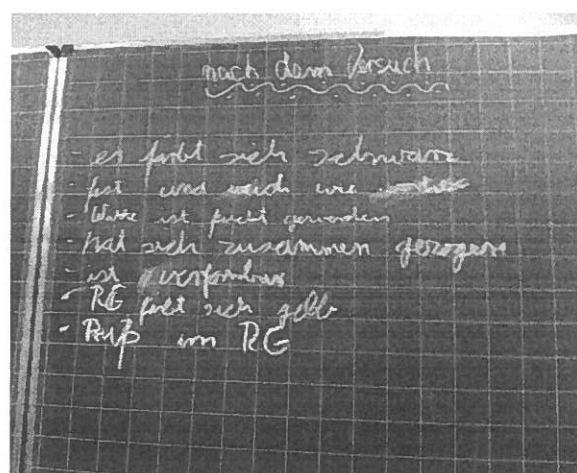 nach dem Versuch
- es färbt sich schwarz
- fest und weich wie
- Watte ist feucht geworden
- hat sich zusammen gezogen
- ist verformbar
- RG färbt sich gelb
- Ruß im RG